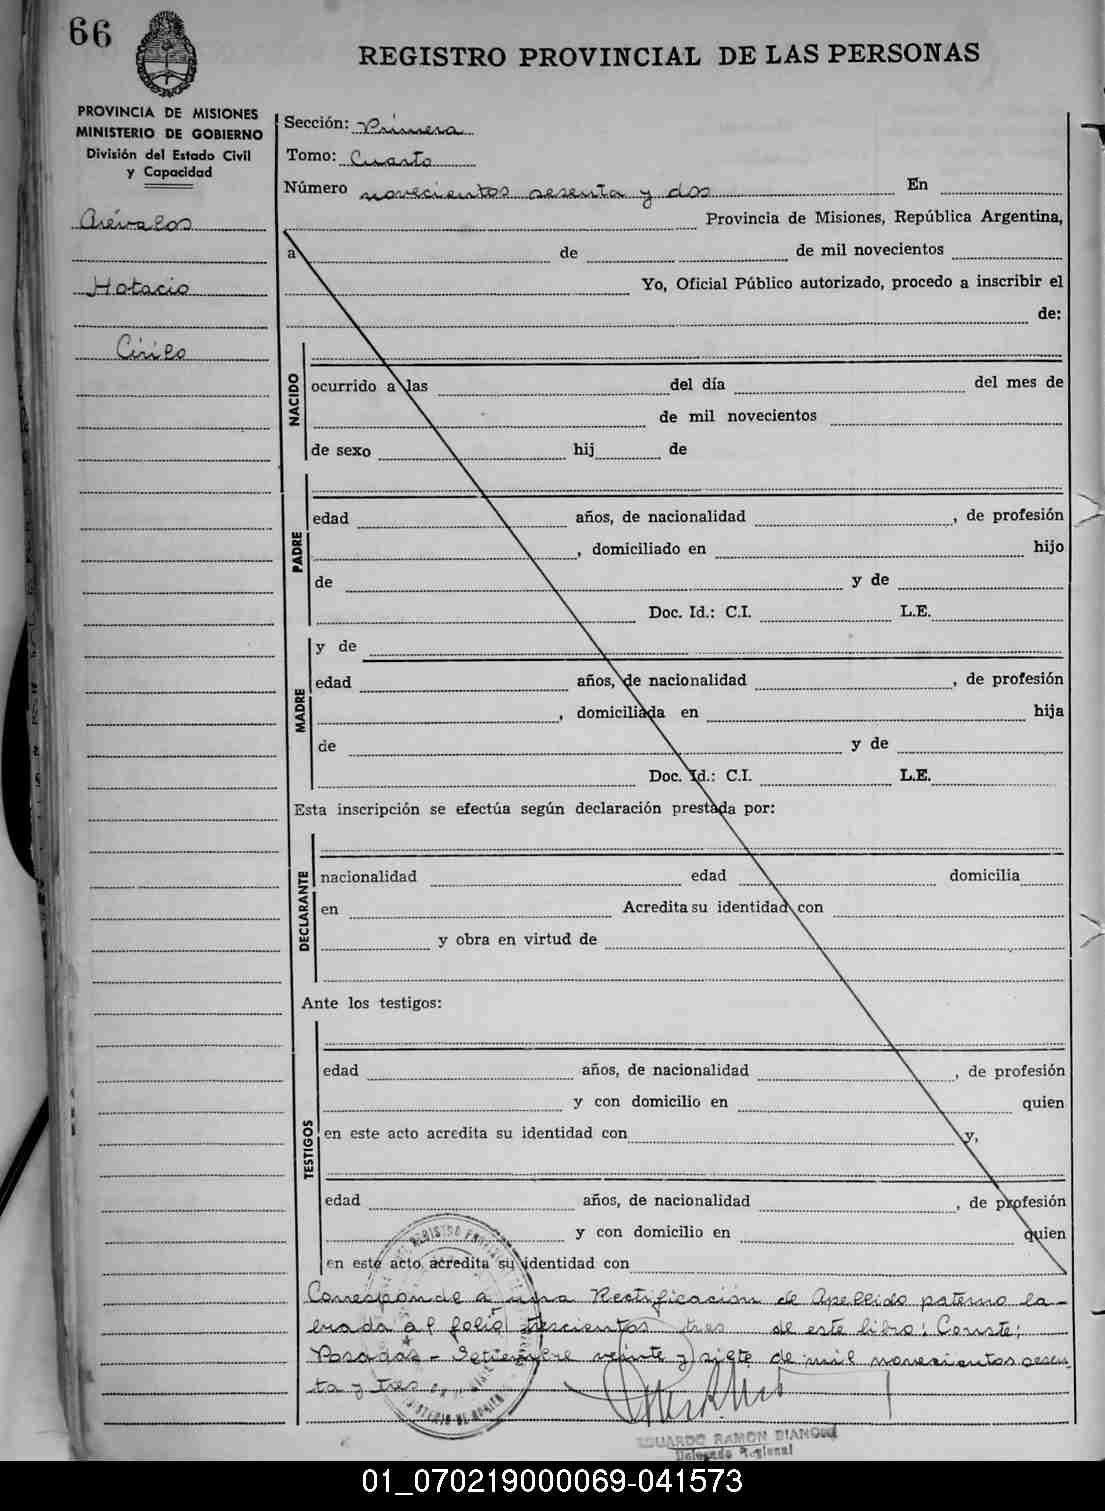 66
REGISTRO PROVINCIAL DE LAS PERSONAS
PROVINCIA DE MISIONES
MINISTERIO DE GOBIERNO
División del Estado Civil
y Capacidad
Arévalos
Horacio
Cirilo
Sección: Primera
Tomo: Cuarto
Número novecientos sesenta y dos En
Provincia de Misiones, República Argentina,
a de de mil novecientos
Yo, Oficial Público autorizado, procedo a inscribir el
de:
NACIDO
ocurrido a las del día del mes de
de mil novecientos
de sexo hij de
PADRE
edad años, de nacionalidad , de profesión
, domiciliado en hijo
de y de
Doc. Id.: C.I. L.E.
MADRE
y de
edad años, de nacionalidad , de profesión
, domiciliada en hija
de y de
Doc. Id.: C.I. L.E.
Esta inscripción se efectúa según declaración prestada por:
DECLARANTE
nacionalidad edad domicilia
en Acredita su identidad con
y obra en virtud de
Ante los testigos:
TESTIGOS
edad años, de nacionalidad , de profesión
y con domicilio en quien
en este acto acredita su identidad con y,
edad años, de nacionalidad , de profesión
y con domicilio en quien
en este acto acredita su identidad con
Corresponde a una Rectificación de Apellido paterno la-
brada al folio trescientos tres de este libro; Conste;
Posadas - Setiembre veinte y siete de mil novecientos sesen
ta y tres
EDUARDO RAMON BIANCHI
Delegado Regional
01_070219000069-041573